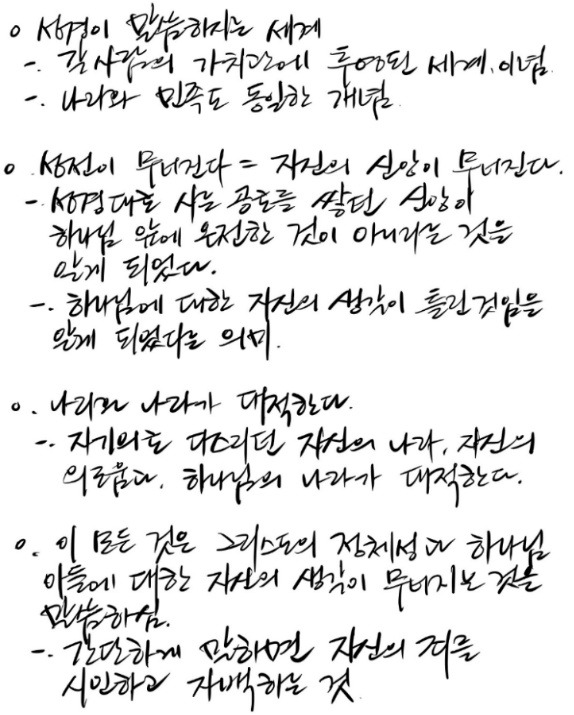 o 성경이 말씀하시는 세계
-. 각 사람의 가치관에 투영된 세계, 이념.
-. 나라와 민족도 동일한 개념.
o 성전이 무너진다 = 자신의 신앙이 무너진다.
-. 성경대로 사는 공로를 쌓던 신앙이
하나님 앞에 온전한 것이 아니라는 것을
알게 되었다.
-. 하나님에 대한 자신의 생각이 틀린 것임을
알게 되었다는 의미.
o. 나라와 나라가 대적한다.
-. 자기 의로 다스리던 자신의 나라, 자신의
의로움과, 하나님의 나라가 대적한다.
o. 이 모든 것은 그리스도의 정체성과 하나님
아들에 대한 자신의 생각이 무너지는 것을
말씀하심.
-. 간단하게 말하면 자신의 죄를
시인하고 자백하는 것